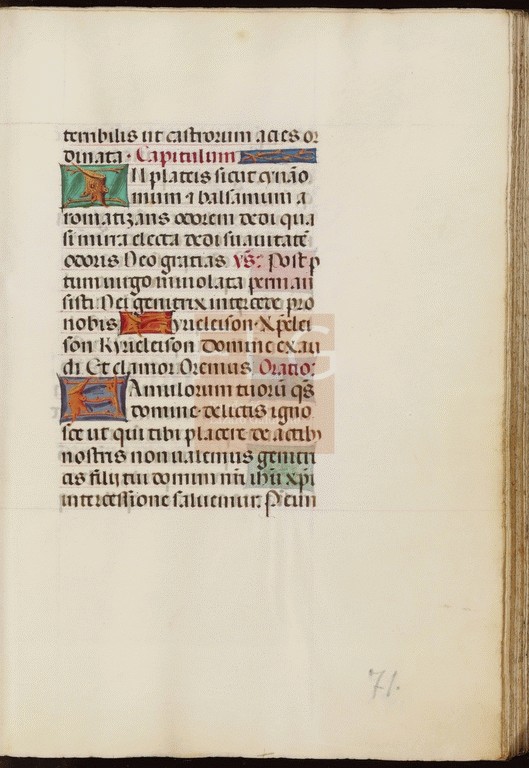 terribilis ut castrorum acies or
dinata · Capitulum
IN plateis sicut cynāo
mum ⁊ balsamum a
romatizans odorem dedi qua
si mirra electa dedi suauitatē
odoris Deo gratias vs̃: Post p
tum uirgo inuiolata perman
sisti Dei genitrix intercede pro
nobis Kyrieleison · Xp̄elei
son Kyrieleison Domine exau
di Et clamor Oremus Oratio:
FAmulorum tuorū qs̄
domine delictis igno
sce ut qui tibi placere de actib⁹
nostris non ualemus geniti
cis filij tui domini nr̄i ihū xp̄i
intercessione saluemur. P̄ eun
71.